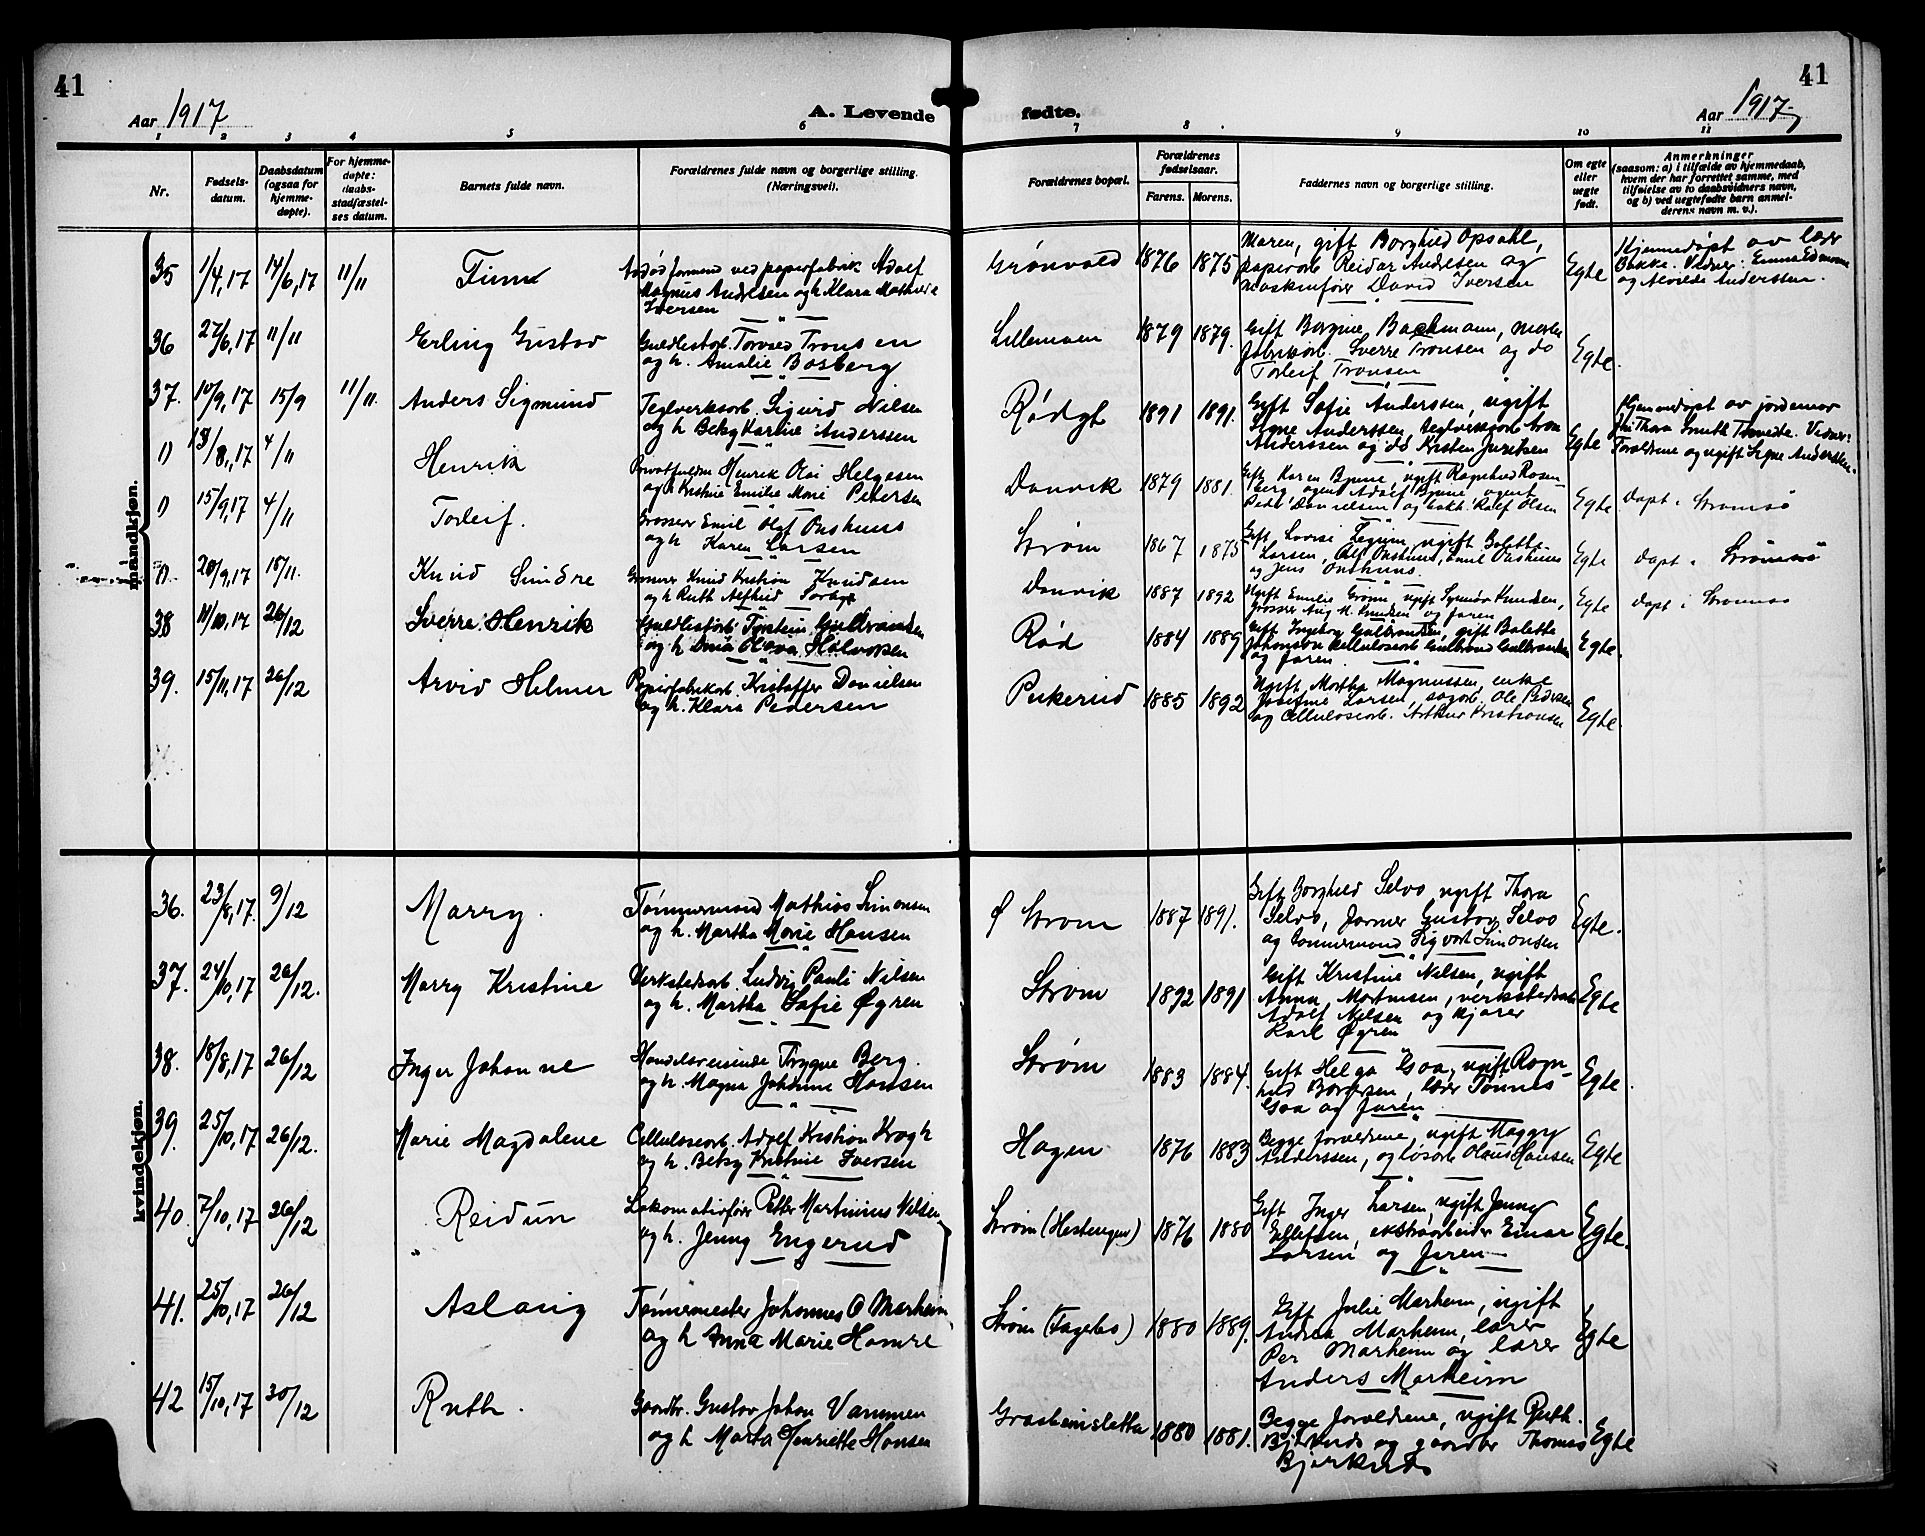 41
41
Aar 1917
A. Levende
fødte.
Aar 1917
1 2 3 4 5 6 7 8 9 10 11
Nr.
Fødsels-
datum.
Daabsdatum
(ogsaa for
hjemme-
døpte).
For hjemme-
døpte:
daabs-
stadfæstel-
ses datum.
Barnets fulde navn.
Forældrenes fulde navn og borgerlige stilling.
(Næringsvei).
Forældrenes bopæl.
Forældrenes
fødselsaar.
Farens. Morens.
Faddernes navn og borgerlige stilling.
Om egte
eller
uegte
født.
Anmerkninger
(saasom: a) i tilfælde av hjemmedaab,
hvem der har forrettet samme, med
tilføielse av to daabsvidners navn,
og b) ved uegtefødte barn anmel-
derens navn m. v.).
mandkjøn.
35 1/4,17 14/6,17 11/11 Finn
formand ved papirfabrik Adolf
Magnus Andresen og h. Klara Mathilde
Iversen
Grønvold 1876 1875
Maren, gift Borghild Opsahl,
papirarb. Reidar Andresen og
maskinfører David Iversen
Egte
Hjemmedøpt av lær
Bakke. Vidner: Emma
og Alvilde Anderssen.
36 27/6,17 11/11 Erling Gustav
Tronsen
og h. Amalie Bosberg
Lillemoen 1879 1879.
Gift Borgine Backmann,
fabrikarb. Sverre Tronsen og do
Torleif Tronsen
Egte.
37. 10/9,17 15/9 11/11. Anders Sigmund
Teglverksarb. Sigurd Nilsen
og h Betsy Karine Anderssen
Rødgt 1891 1891.
Gift Sofie Anderssen, ugift
Signe Anderssen, teglverksarb.
Anderssen og do Kristen
Egte
Hjemmedøpt av jordemor
Thora Smith Tvedte. Vidner:
Forældrene og ugift Signe Anderssen.
13/8,17 4/11 Henrik
Henrik Olai Helgesen
og h Kristine Emilie Marie Petersen
Danvik 1879 1881.
Gift Karen Bjune, ugift Ragnhild Rosen-
berg, agent Adolf Bjune, agent
Peder Danielsen og Ralf Olsen
Egte døpt i Strømsø
15/9,17 4/11 Torleif.
Grosserer Emil Olaf Onshuus
og h Karen Larsen
Strøm 1867 1875
Gift Lovise ugift Bolette
Larsen, Ole Onshuus, Emil Onshuus
og Jens Onshuus.
Egte døpt i Strømsø
20/9,17 18/11. Knud Sundre
Grosserer Knud Kristian Knudsen
og h Ruth Alfhild
Danvik 1887 1892
Ugift Emilie Grønn, ugift Synnøv Knudsen,
Grosser Aug. M. Knudsen og faren
Egte døpt i Strømsø
38 11/10,17 26/12 Sverre Henrik
Torstein Gulbrandsen
og h Olava Halvorsen
Rød 1884 1889
Gift Ingeborg Gulbrandsen, gift Bolette
Johanson Cellulosearb. Gulbrand Gulbrandsen
og faren.
Egte.
39. 15/11,17 26/12 Arvid Helmer
Papirfabrikarb. Kristoffer Danielsen
og h. Klara Pedersen
Pukerud 1885 1892
Ugift Martha Magnussen, enke
Josefine Larsen, sagarb. Ole Pedersen
og Cellulosearb. Arthur Kristiansen
Egte.
kvindekjøn.
36. 23/8,17. 9/12 Marry.
Tømmermand Mathias Simonsen
og h. Martha Marie Hansen
Ø Strøm 1887 1891.
Gift Borghild Selvo ugift Thora
Selvo, Gustav Selvo
og tømmermand Sigvart Simonsen
Egte.
37. 24/10,17 26/12. Marry Kristine
Verkstedarb. Ludvig Pauli Nilsen
og h. Martha Sofie Øgren
Strøm 1892 1891
Gift Kristine Nilsen, ugift
Anna Martinsen, verkstedarb.
Adolf Nilsen og kjører
Karl Øgren
Egte
38. 18/8,17 26/12 Inger Johanne
Handelsreisende Trygve Berg.
og h. Magna Johanne Hansen
Strøm 1883 1884.
Gift Helga Goa, ugift Ragn-
hild Borgersen, lærer Tønnes
Goa og faren
Egte
39. 25/10,17 26/12. Marie Magdalene
Cellulosearb. Adolf Kristian Kragh
og h. Betsy Kristine Iversen
Hagen 1876 1883
Begge forældrene, ugift Maggy
Anderssen, og løsarb. Olaus Hansen
Egte
40. 7/10,17 26/12 Reidun
Lokomotivfører Petter Martinius Nilsen
og h. Jenny Engerud
Strøm (Hestengen) 1876 1880
Gift Inger Larsen, ugift Jenny
Ellefsen, ekstraarbeider Einar
Larsen og faren
Egte.
41. 25/10,17 26/12 Aslaug
Tømmermester Johannes O Marheim
og h Anna Marie Hamre
Strøm (Fagerbo) 1880 1889.
Gift Julie Marheim, ugift
Andrea Marheim, lærer
Per Marheim og lærer
Anders Marheim
Egte
42 15/10,17 30/12 Ruth.
Gaardbr. Gustav Johan Vammen
og h Marta Henriette Hansen
Grasteinsletta 1880 1881.
Begge forældrene, ugift Ruth
Bjerknds og gaardbr Thomas
Bjerknds
Egte